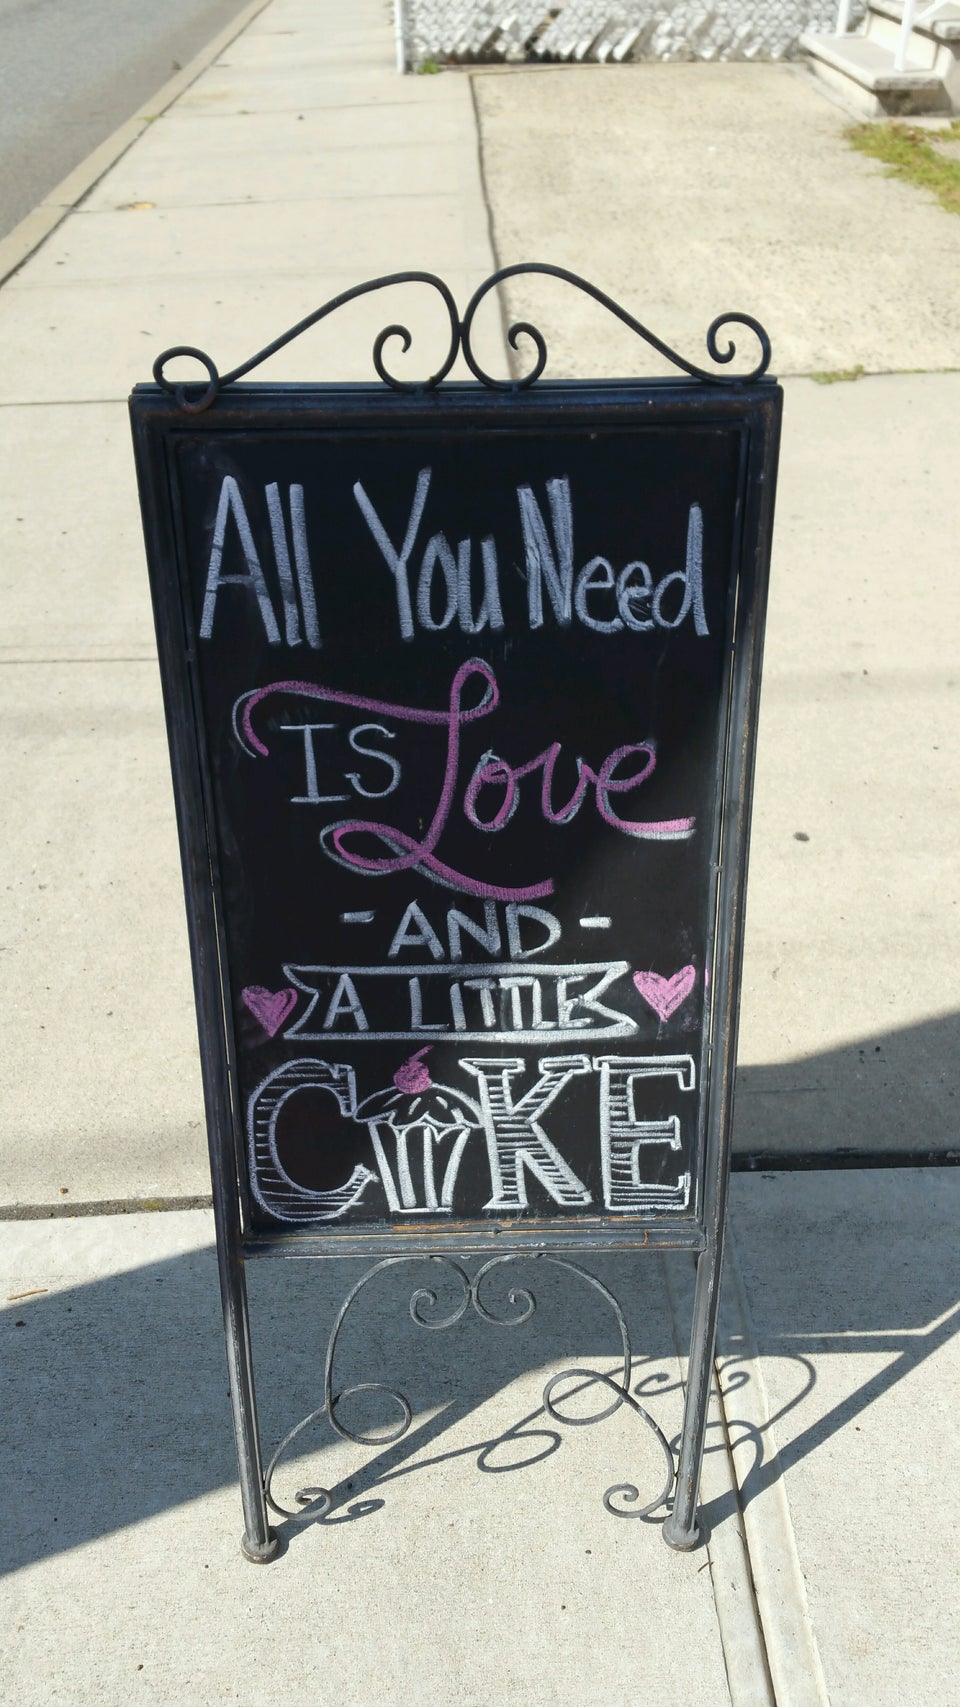 All You Need
IS Love
- AND -
A LITTLE
CAKE